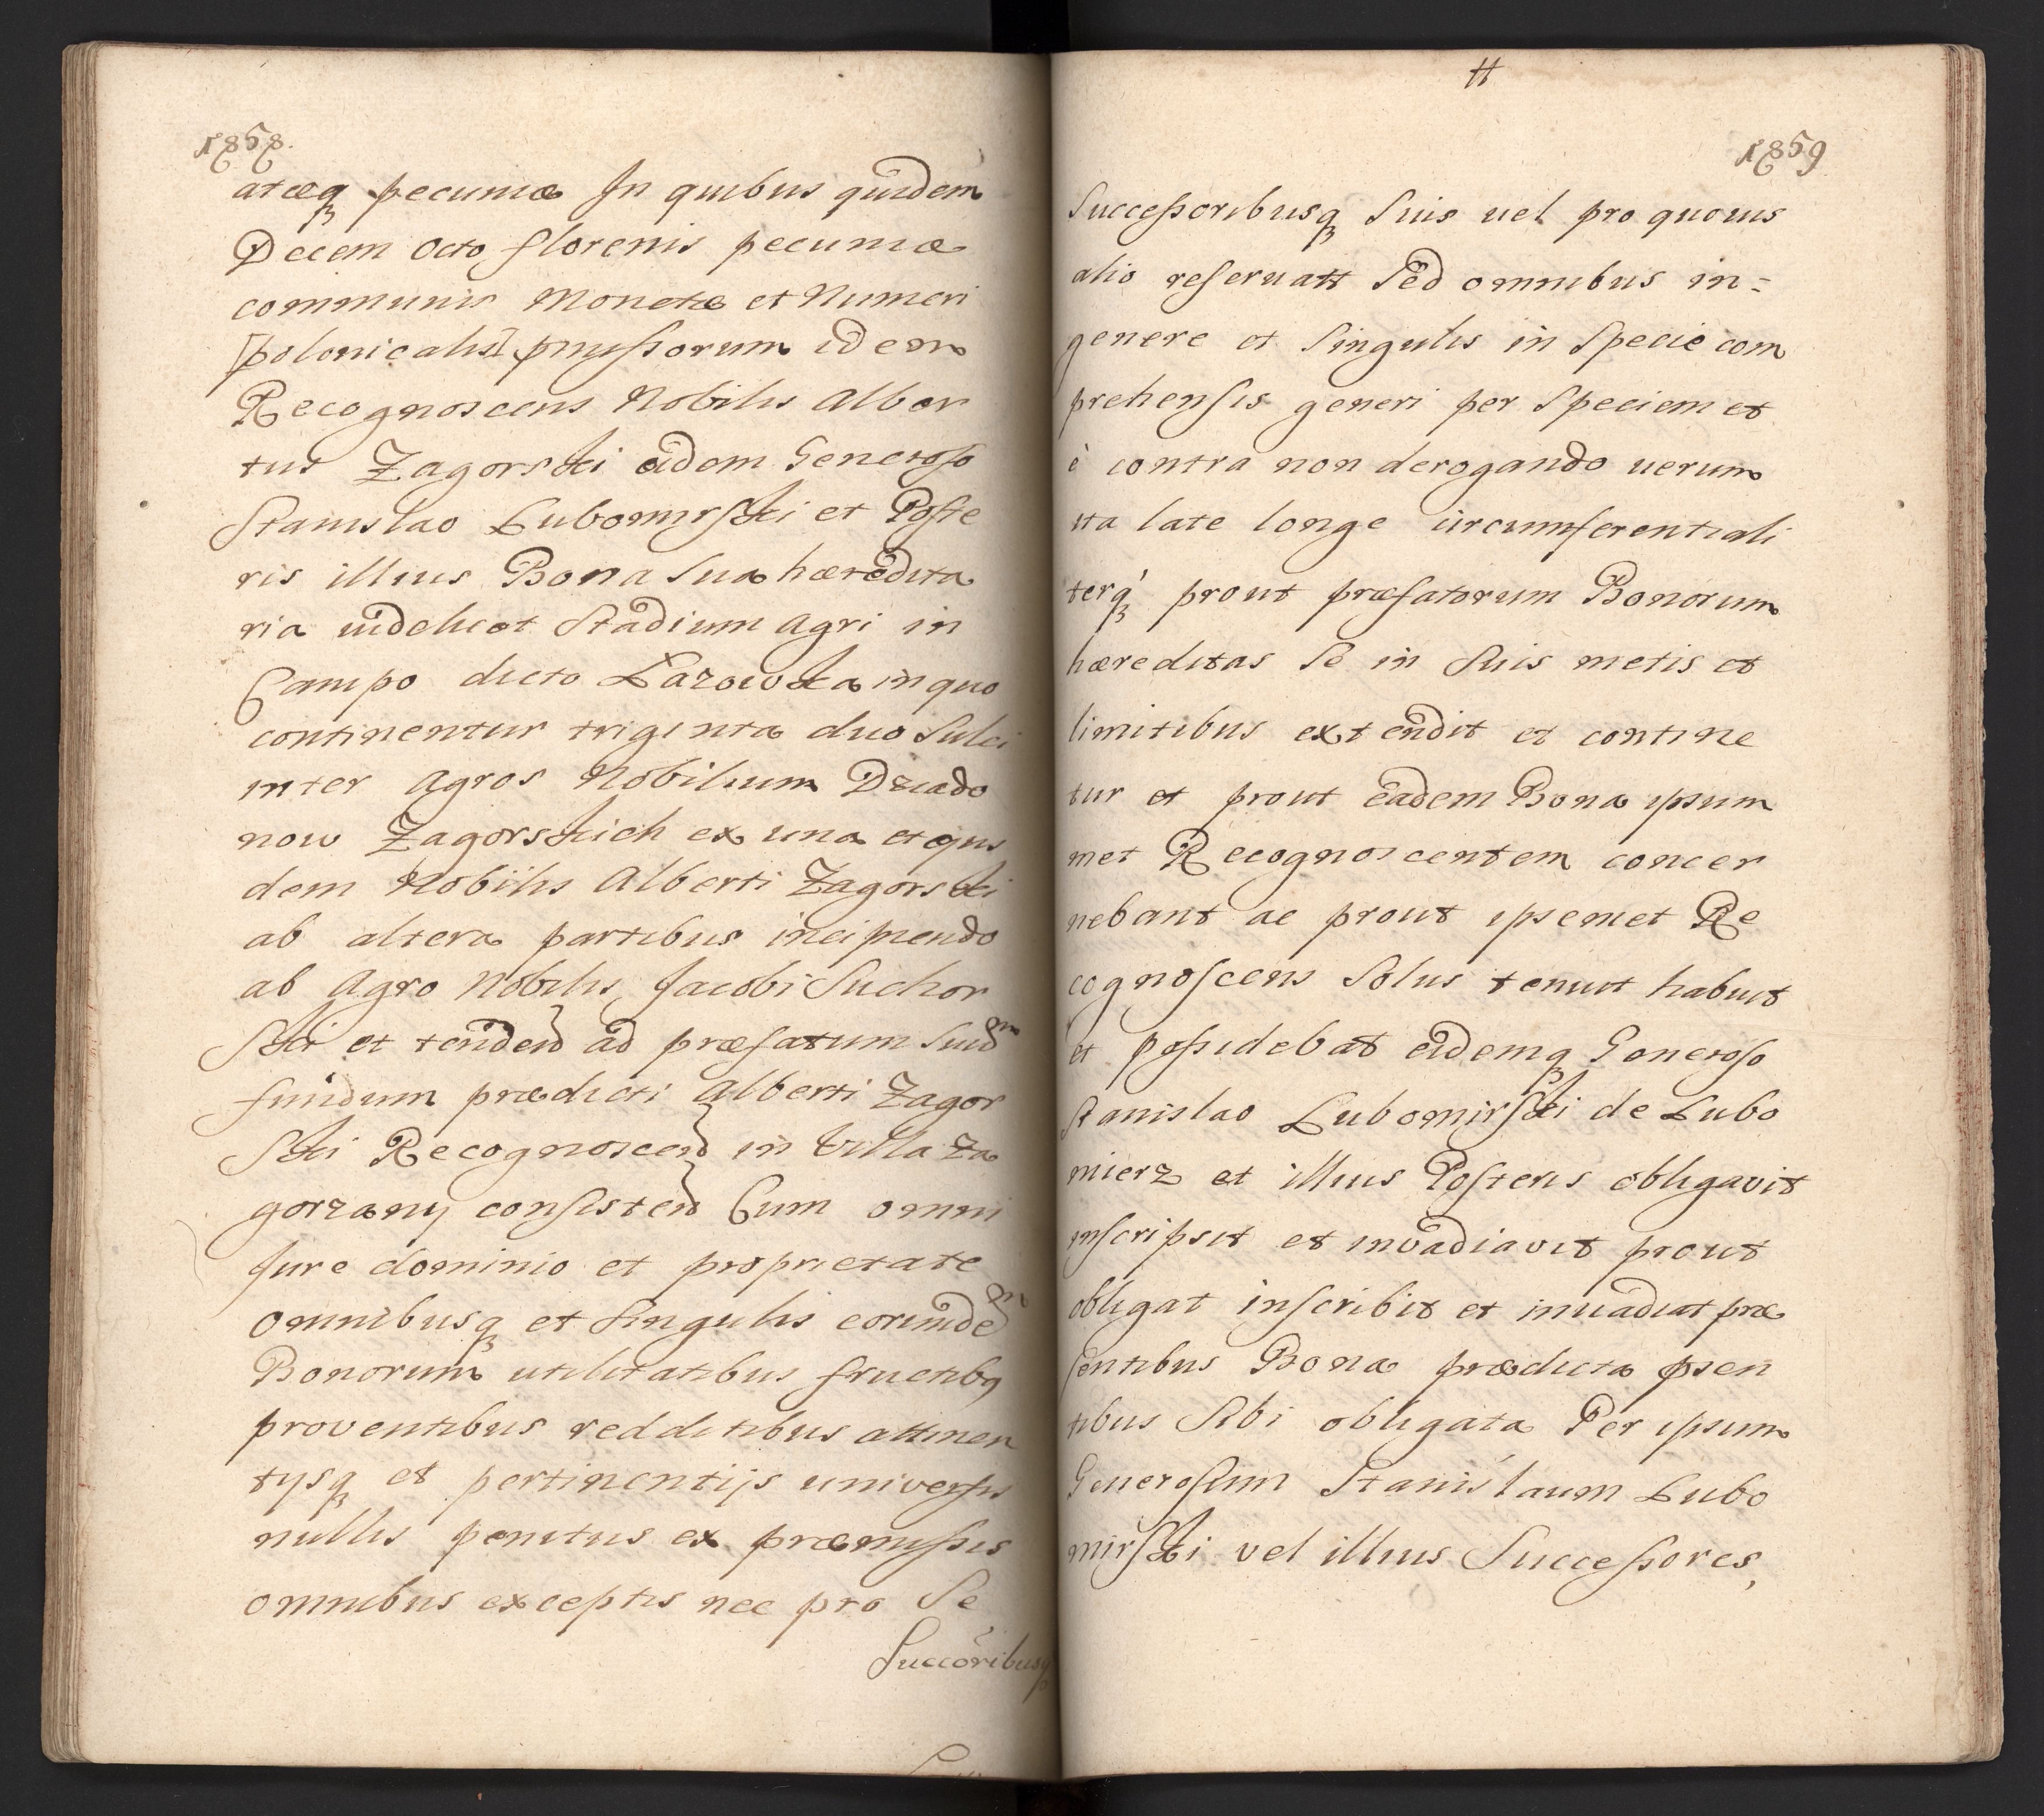 1858.
atæq₃ pecuniæ In quibus quidem
Decem octo florenis pecuniæ
communis Monetæ et Numeri
[polonicalis] pmissorum idem
Recognoscens Nobilis Alber
tus Zagorski eidem Generoso
Stanislao Lubomirski et Poste
ris illius Bona sua hæredita
ria videlicet Stadium agri in
Campo dicto Łazowka in quo
continentur triginta duo Sulci
inter agros Nobilium Dziado
now Zagorskich ex una et ejus
dem Nobilis Alberti Zagorski
ab altera partibus incipiendo
ab agro Nobilis Jacobi Suchor
ski et tenden ad præfatum
fundum prædicti Alberti Zagor
ski Recognoscen in Villa Za
gorzany consisten Cum omni
jure dominio et proprietate
omnibusq₃ et singulis eorunde
Bonorum utilitatibus fructibq
proventibus redditibus attinen
tysq₃ et pertinentijs universis
nullis penitus ex præmissis
omnibus exceptis nec pro se
Succoribusq₃
tt
1859
Successoribusq₃ suis vel pro quovis
alio reservatt sed omnibus in=
genere et singulis in specie com
prehensis generi per speciem et
è contra non derogando verum
ita late longe circumferentiali
terq₃ prout præfatorum Bonorum
hæreditas se in suis metis et
limitibus extendit et contine
tur et prout eadem Bona ipsum
met Recognoscentem concer
nebant ac prout ipsemet Re
cognoscens solus tenuit habuit
et possidebat eidemq₃ Generoso
Stanislao Lubomirski de Lubo
mierz et illius Posteris obligavit
inscripsit et invadiavit prout
obligat inscribit et invadiat præ
sentibus Bona prædicta psen
tibus sibi obligata Per ipsum
Generosum Stanislaum Lubo
mirski vel illius Successores,